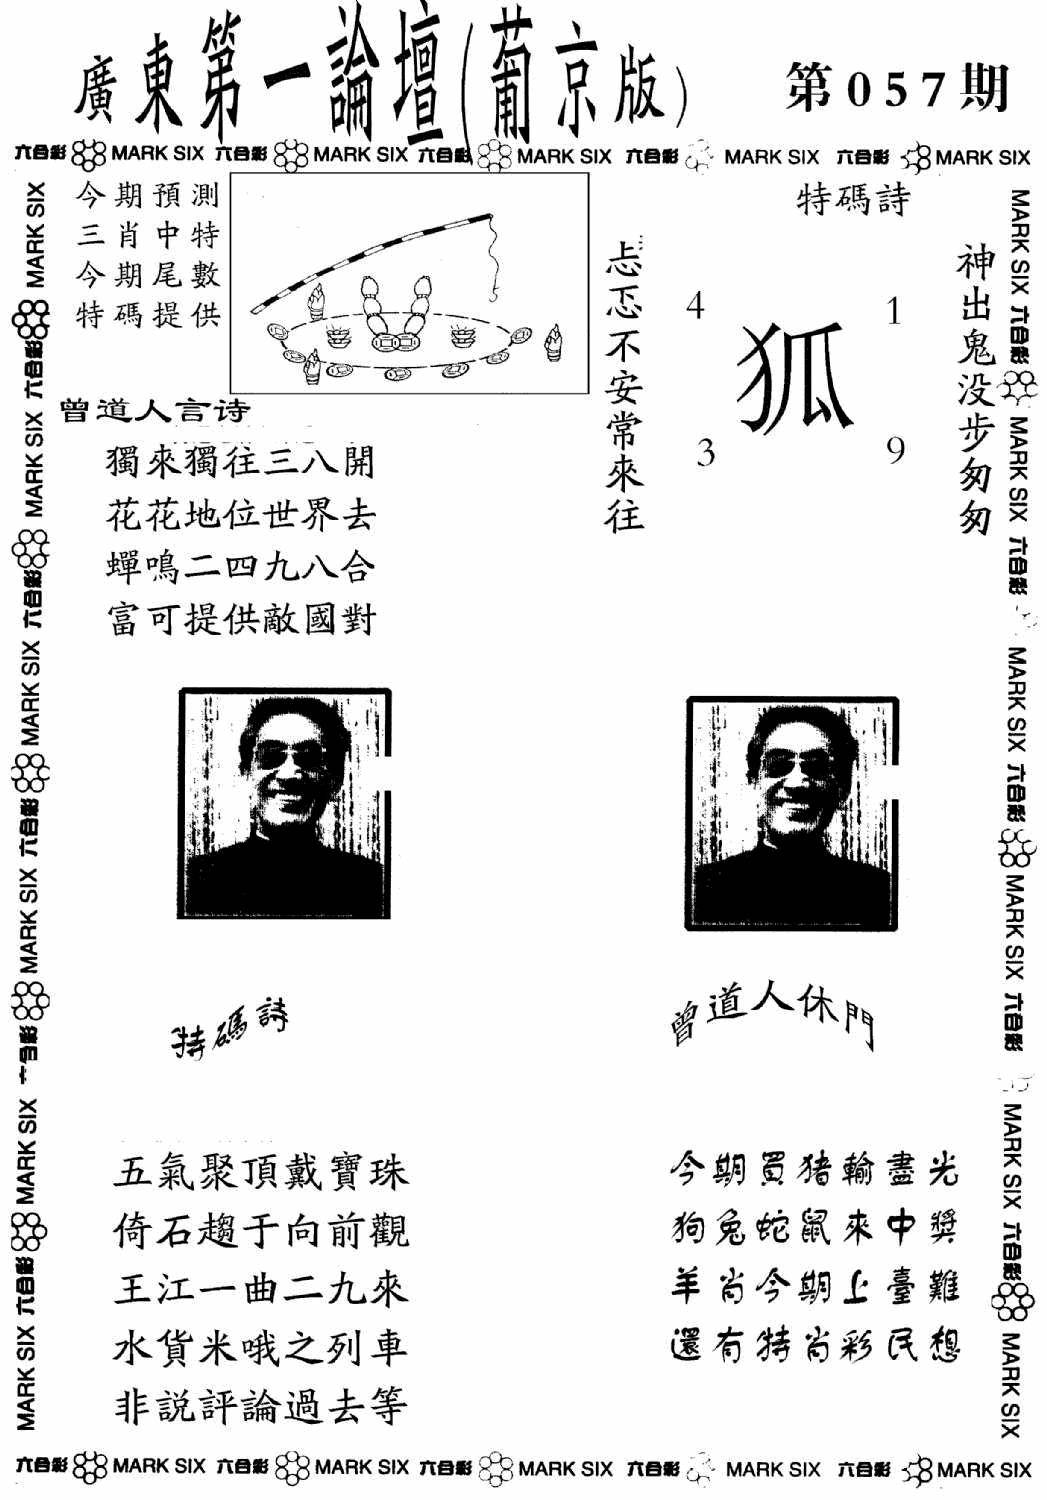 廣東第一論壇(葡京版)
第057期
六合彩 MARK SIX 六合彩 MARK SIX 六合彩 MARK SIX 六合彩 MARK SIX 六合彩 MARK SIX
今期預測
三肖中特
今期尾數
特碼提供
特碼詩
忐忑不安常來往
4
1
狐
3
9
神出鬼没步匆匆
曾道人言诗
獨來獨往三八開
花花地位世界去
蟬鳴二四九八合
富可提供敵國對
特碼詩
五氣聚頂戴寶珠
倚石趨于向前觀
王江一曲二九來
水貨米哦之列車
非説評論過去等
曾道人休門
今期買猪輸盡光
狗兔蛇鼠來中獎
羊肖今期上臺難
還有特肖彩民想
MARK SIX 六合彩 MARK SIX 六合彩 MARK SIX 六合彩 MARK SIX 六合彩 MARK SIX 六合彩 MARK SIX
MARK SIX 六合彩 MARK SIX 六合彩 MARK SIX 六合彩 MARK SIX 六合彩 MARK SIX 六合彩 MARK SIX
六合彩 MARK SIX 六合彩 MARK SIX 六合彩 MARK SIX 六合彩 MARK SIX 六合彩 MARK SIX